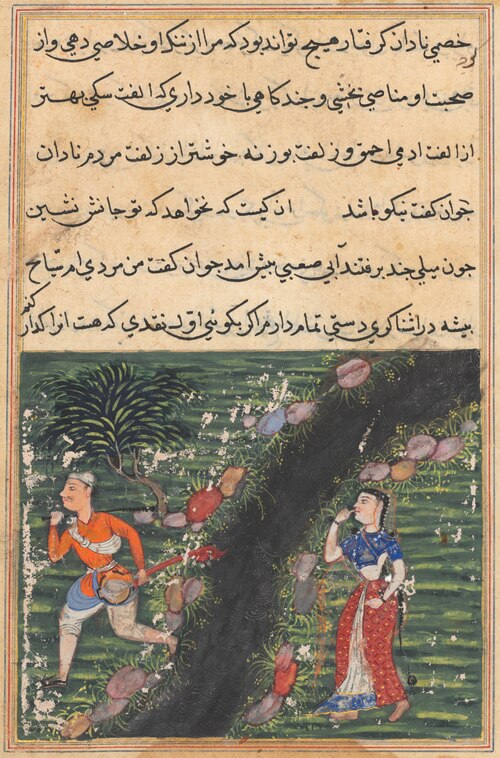 خصمي نادان كرفتار هيچ تواند بود كه مرا از ننك او خلاصي دهي و از
صحبت او مناصي بخشي و چند كاهي با خود داري كه الفت سكي بهتر
از الفت ادمي احمق و زلفت بوزنه خوشتر از زلفت مردم نادان
جوان كفت نيكو باشد ان كيست كه نخواهد كه تو جانش نشين
جون ميلي چند برفتند آبي صعبي پيش امد جوان كفت من مردي ام سباح
پيشه در اشناكري دستي تمام دارم اكر بكوئي اول نقدي كه هست انرا كدار
كنم